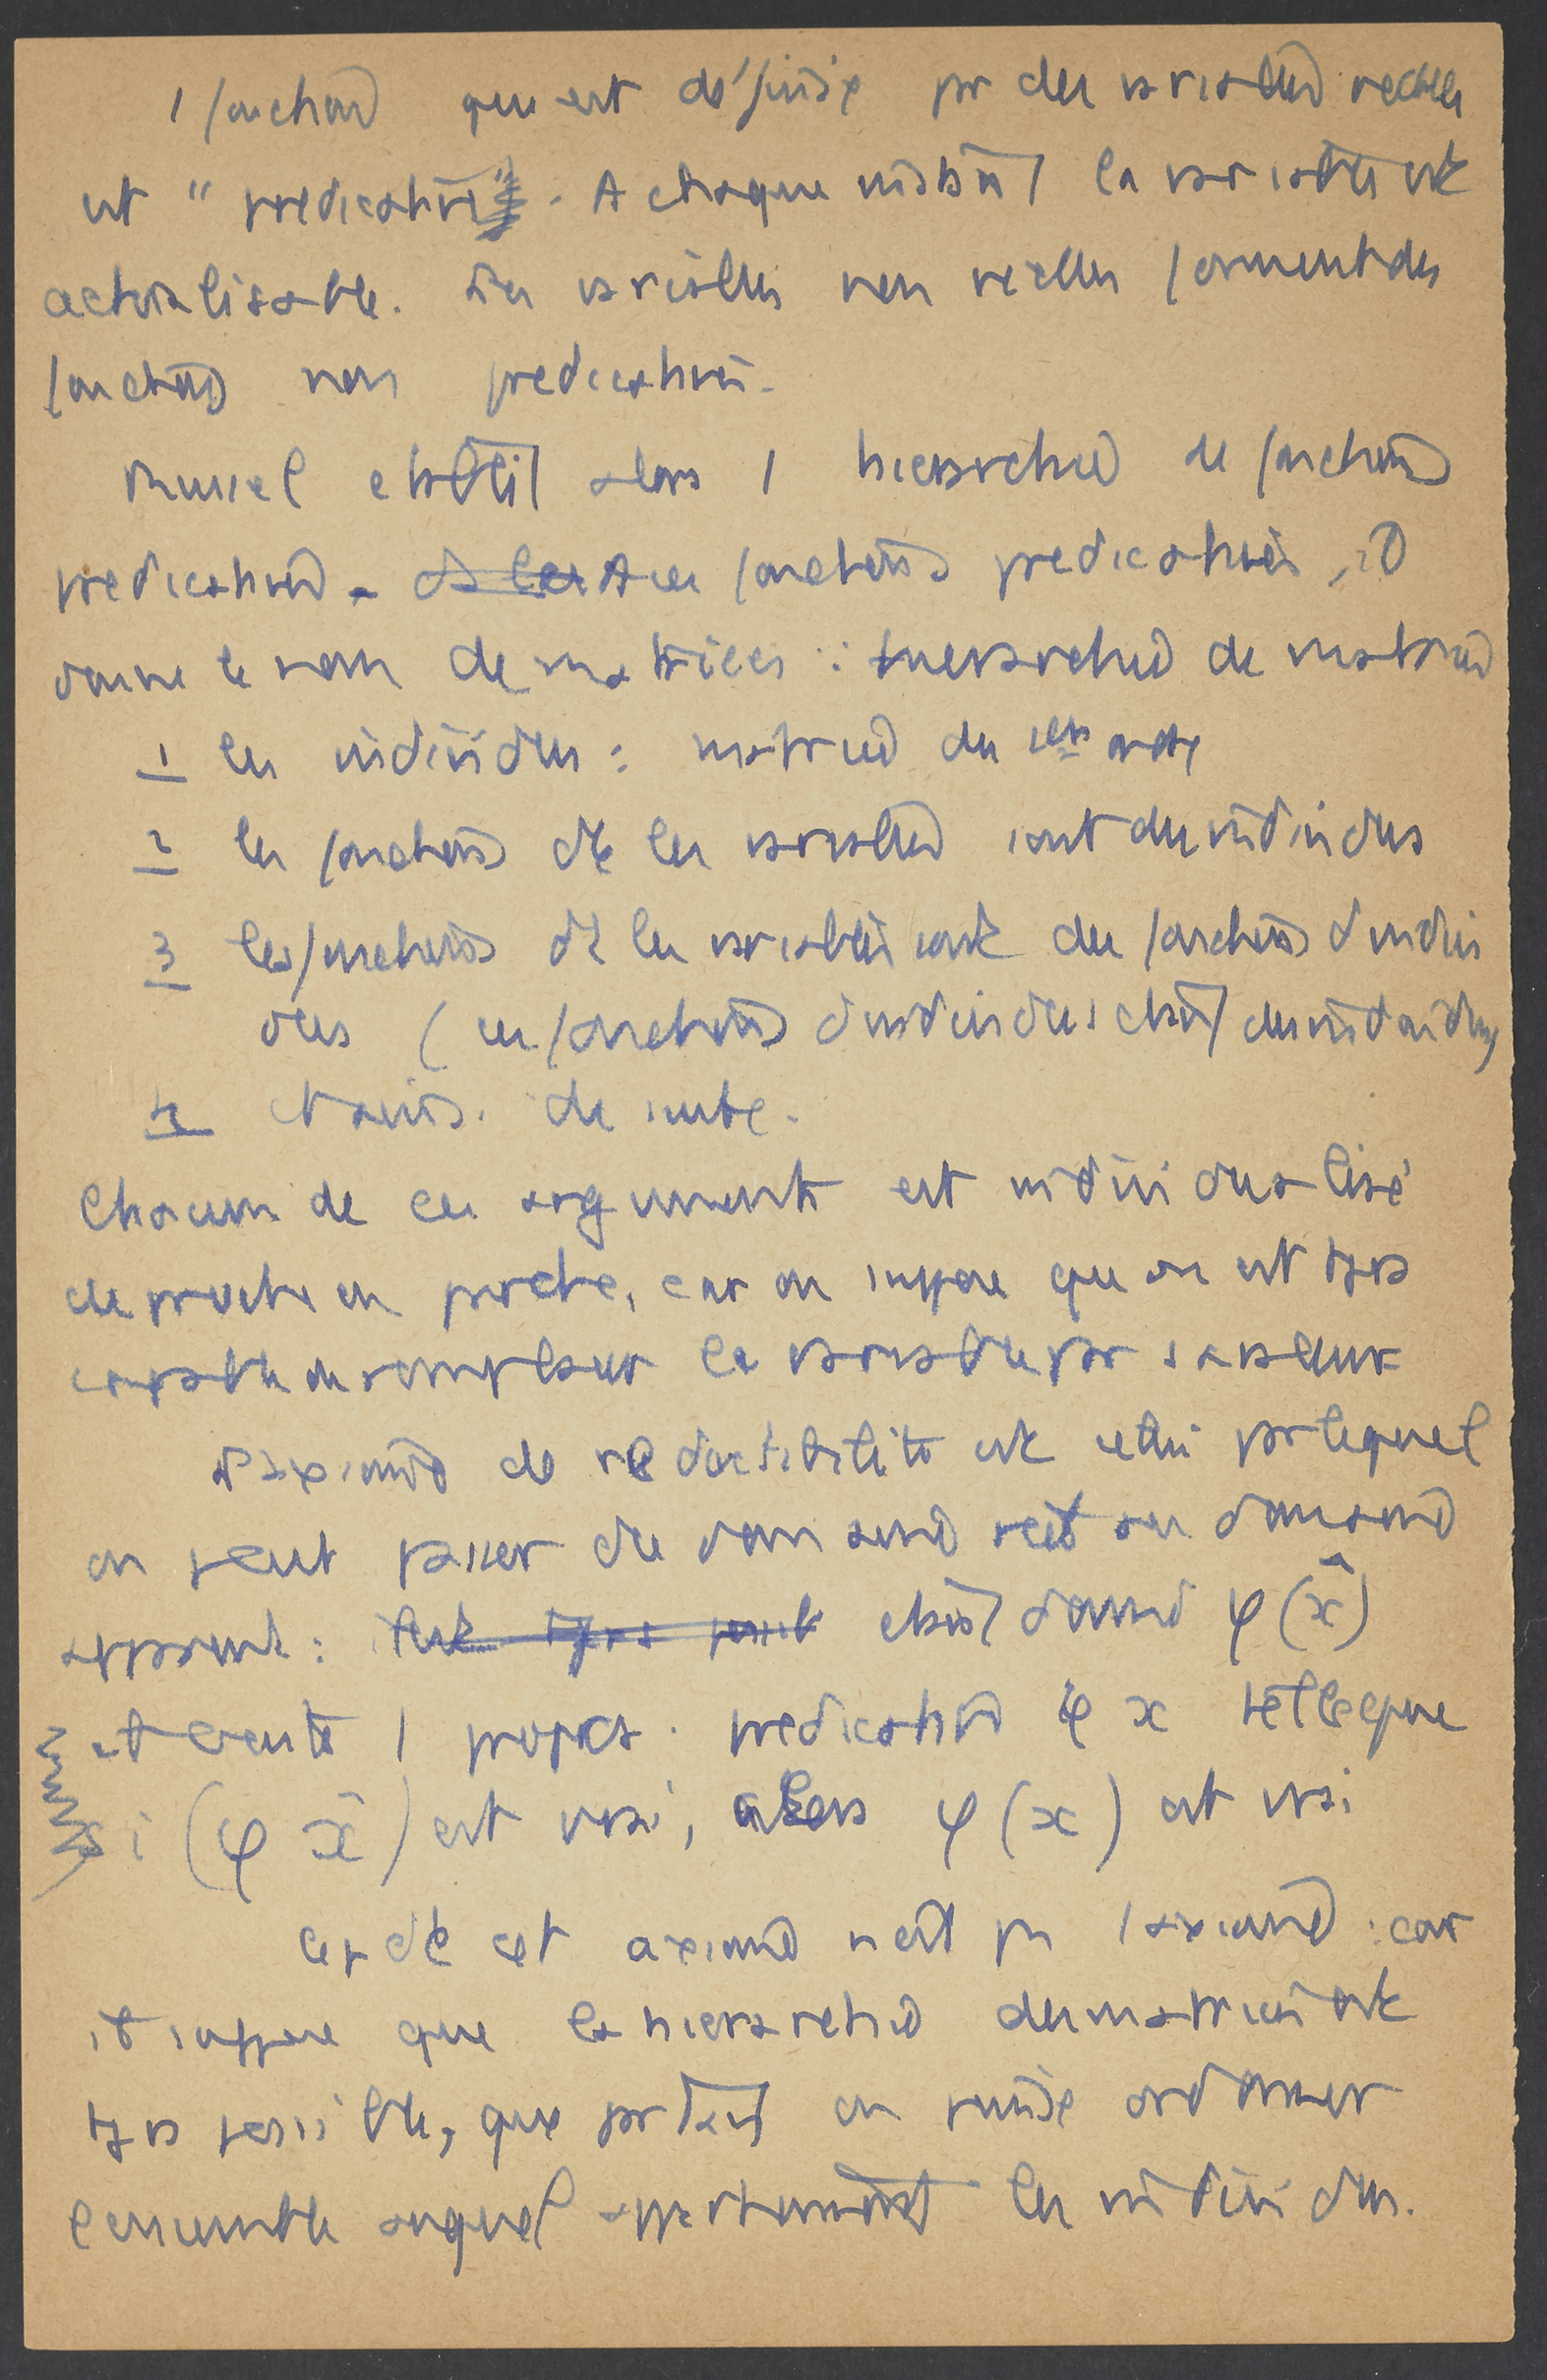 1 fonction qui est définie par des variables réelles
est "predicative". A chaque instant la variable est
actualisable. Les variables non réelles forment des
fonctions non predicatives.
Russel etablit alors 1 hierarchie de fonctions
predicatives. A ces fonctions predicatives, il
donne le nom de matrices : hierarchie de matrices
1 les individus : matrices du 1er ordre
2 les fonctions dt les variables sont des individus
3 les fonctions dt les variables sont des fonctions d'indivi
dus (ces fonctions d'individus étant des individus)
4 et ainsi de suite.
Chacun de ces arguments est individualisé
de proche en proche, car on suppose que on est tjrs
capable de remplacer la variable par sa valeur
L'axiome de reductibilité est celui par lequel
on peut passer du domaine réel au domaine
apparent : étant donné φ(x̂)
il existe 1 propos. predicative φ x telle que
si (φ x̂) est vrai, alors φ(x) est vrai
Cepdt cet axiome n'est pas 1 axiome : car
il suppose que la hierarchie des matrices est
tjrs possible, que par tant on puisse ordonner
l'ensemble auquel appartiennent les individus.